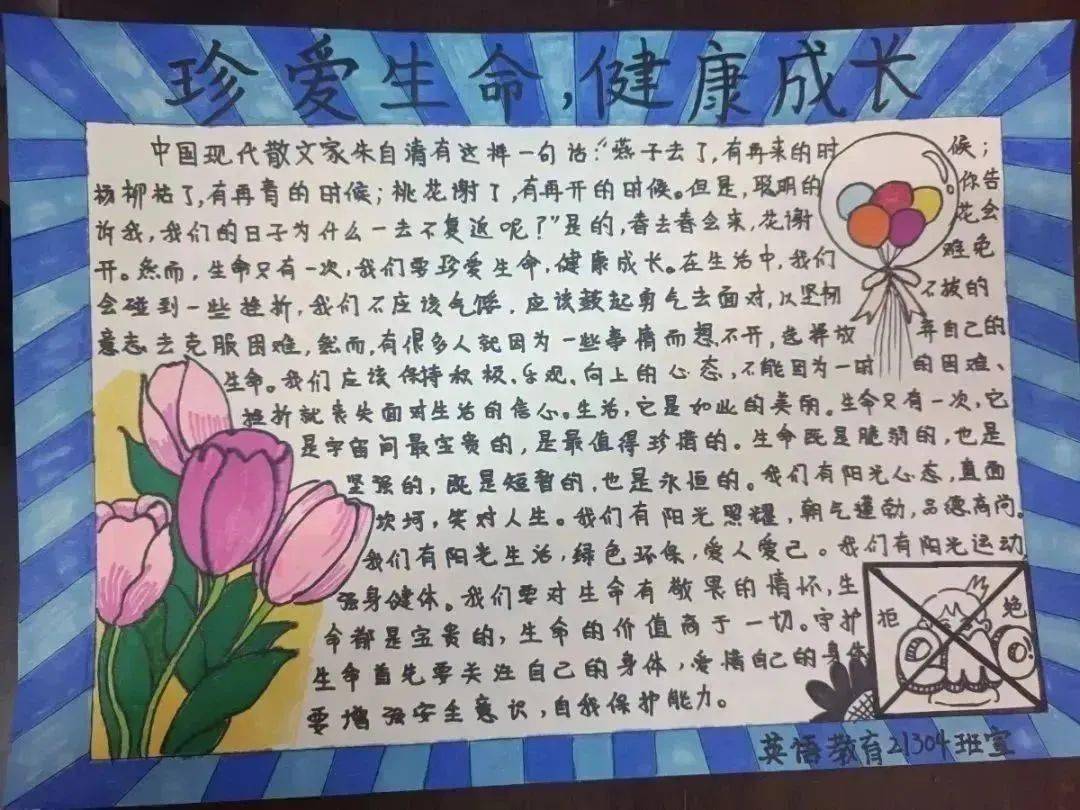 珍爱生命,健康成长
中国现代散文家朱自清有这样一句话:“燕子去了,有再来的时候;
杨柳枯了,有再青的时候;桃花谢了,有再开的时候。但是,聪明的你告
诉我,我们的日子为什么一去不复返呢?”是的,春去春会来,花谢花会
开。然而,生命只有一次,我们要珍爱生命,健康成长。在生活中,我们难免
会碰到一些挫折,我们不应该气馁,应该鼓起勇气去面对,以坚韧不拔的
意志去克服困难,然而,有很多人就因为一些事情而想不开,选择放弃自己的
生命。我们应该保持积极、乐观、向上的心态,不能因为一时的困难、
挫折就丧失面对生活的信心。生活,它是如此的美丽。生命又有一次,它
是宇宙间最宝贵的,是最值得珍惜的。生命既是脆弱的,也是
坚强的,既是短暂的,也是永恒的。我们有阳光心态,直面
坎坷,笑对人生。我们有阳光照耀,朝气蓬勃,品德高尚。
我们有阳光生活,绿色环保,爱人爱己。我们有阳光运动,
强身健体。我们要对生命有敬畏的情怀,生
命都是宝贵的,生命的价值高于一切。守护
生命首先要关注自己的身体,爱惜自己的身体
要增强安全意识,自我保护能力。
拒绝
英语教育21304班宣